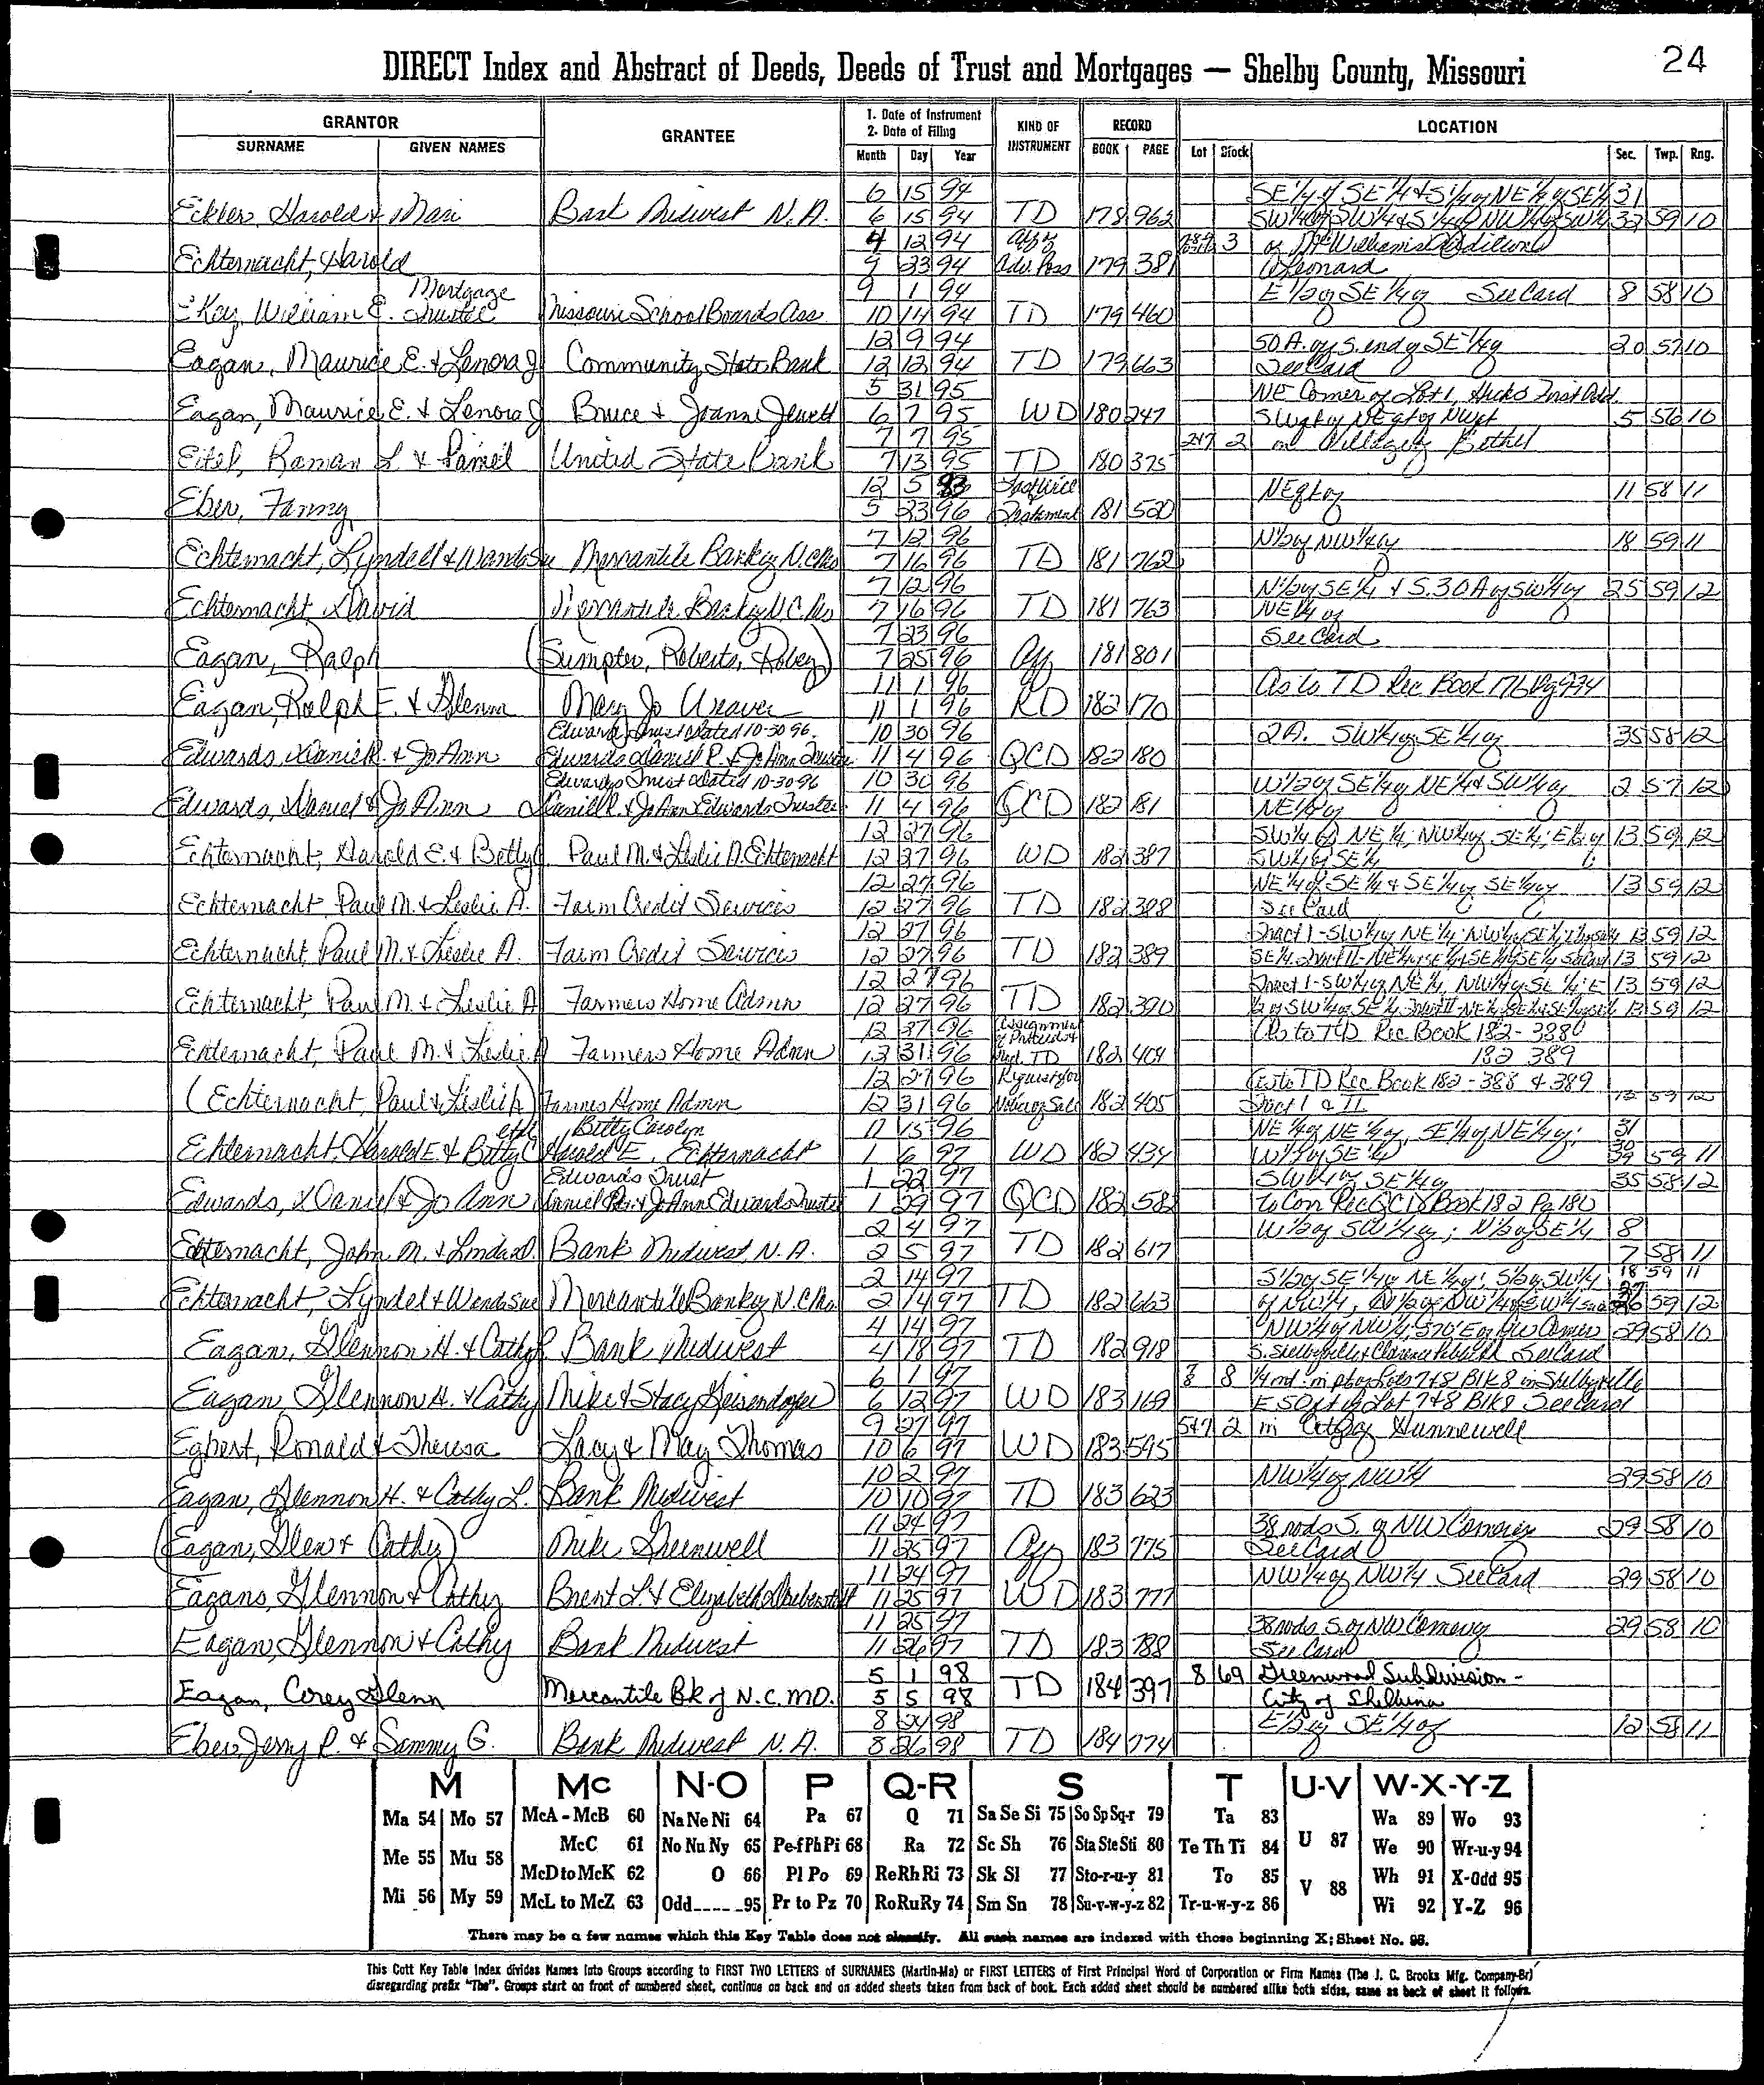 24
DIRECT Index and Abstract of Deeds, Deeds of Trust and Mortgages — Shelby County, Missouri
GRANTOR GRANTEE 1. Date of Instrument 2. Date of Filing KIND OF INSTRUMENT RECORD LOCATION
SURNAME GIVEN NAMES Month Day Year BOOK PAGE Lot Block Sec. Twp. Rng.
6 15 94 SE 1/4 of SE 1/4 & S 1/4 of NE 1/4 of SE 1/4 31
Eckler, Harold & Mari Bank Midwest N.A. 6 15 94 TD 178 962 SW 1/4 of SW 1/4 & S 1/4 of NW 1/4 of SW 1/4 32 59 10
4 12 94 Aff of 3 of McWilliams Addition
Echternacht, Harold 9 23 94 Adv. Poss 179 381 Leonard
Mortgage 9 1 94 E 1/2 of SE 1/4 of See Card 8 58 10
EKay, William E. Trustee Missouri School Boards Ass 10 14 94 TD 179 460
12 9 94 50 A. of S. end of SE 1/4 of 20 57 10
Eagan, Maurice E. & Lenora J Community State Bank 12 12 94 TD 179 663 See Card
5 31 95 NE Corner of Lot 1, Hicks First Add.
Eagan, Maurice E. & Lenora J Bruce & Joanne Jewett 6 7 95 WD 180 247 SW qt of NE qt of NW qt 5 56 10
7 7 95 2 in Village of Bethel
Eitel, Roman L & United State Bank 7 13 95 TD 180 375
12 5 83 Last Will NE qt of 11 58 11
Eber, Fanny 5 23 96 Testament 181 520
7 12 96 N 1/2 of NW 1/4 of 18 59 11
Echternacht, Lyndell & Wanda Sue Mercantile Bank of N.C. Mo 7 16 96 TD 181 762
7 12 96 N 1/2 of SE 1/4 & S. 30 A of SW 1/4 of 25 59 12
Echternacht, David Mercantile Bank of N.C. Mo 7 16 96 TD 181 763 NE 1/4 of
7 23 96 See Card
Eagan, Ralph (Sumpter, Roberts, Robey) 7 25 96 Aff 181 801
11 1 96 As to TD Rec Book 176 Pg 934
Eagan, Ralph E. & Glenna Mary Jo Weaver 11 1 96 RD 182 170
Edwards Trust Dated 10-30-96. 10 30 96 2 A. SW 1/4 of SE 1/4 of 35 58 12
Edwards, Daniel R. & JoAnn Edwards Daniel R. & JoAnn Trustee 11 4 96 QCD 182 180
Edwards Trust Dated 10-30-96 10 30 96 W 1/2 of SE 1/4 of NE 1/4 & SW 1/4 of 2 57 12
Edwards, Daniel & Jo Ann Daniel R. & JoAnn Edwards Trustee 11 4 96 QCD 182 181 NE 1/4 of
12 27 96 SW 1/4 of NE 1/4; NW 1/4 of SE 1/4; E 1/2 of 13 59 12
Echternacht, Harold E. & Betty C Paul M. & Leslie A. Echternacht 12 27 96 WD 182 387 SW 1/4 of SE 1/4
12 27 96 NE 1/4 of SE 1/4 & SE 1/4 of SE 1/4 of 13 59 12
Echternacht, Paul M. & Leslie A. Farm Credit Services 12 27 96 TD 182 388 See Card
12 27 96 Tract 1-SW 1/4 of NE 1/4; NW 1/4 of SE 1/4; 13 59 12
Echternacht, Paul M. & Leslie A. Farm Credit Services 12 27 96 TD 182 389 SE 1/4. Tract II-NE 1/4 of SE 1/4 & SE 1/4 of SE 1/4 See Card 13 59 12
12 27 96 Tract 1-SW 1/4 of NE 1/4, NW 1/4 of SE 1/4; E 13 59 12
Echternacht, Paul M. & Leslie A Farmers Home Admn 12 27 96 TD 182 390 1/2 of SW 1/4 of SE 1/4. Tract II-NE 1/4 SE 1/4 & SE 1/4 of SE 1/4 13 59 12
12 27 96 Assignment As to TD Rec Book 182-388 &
Echternacht, Paul M. & Leslie A Farmers Home Admn 12 31 96 TD 182 404 182 389
12 27 96 Request for As to TD Rec Book 182-388 & 389
(Echternacht, Paul & Leslie A) Farmers Home Admn 12 31 96 Notice of Sale 182 405 Tract I & II 13 59 12
etal Betty Carolyn 11 15 96 NE 1/4 of NE 1/4 of, SE 1/4 of NE 1/4 of; 31
Echternacht, Harold E. & Betty C Harold E. Echternacht 1 6 97 WD 182 434 W 1/2 of SE 1/4 59 11
Edwards Trust 1 22 97 SW 1/4 of SE 1/4 of 35 58 12
Edwards, Daniel & Jo Ann Daniel R. & JoAnn Edwards Trustee 1 29 97 QCD 182 582 To Corr Rec QCD Book 182 Pg 180
2 4 97 W 1/2 of SW 1/4 of; N 1/2 of SE 1/4 8
Echternacht, John M. & Linda D. Bank Midwest, N.A. 2 5 97 TD 182 617 7 58 11
2 14 97 S 1/2 of SE 1/4 of NE 1/4 of; S 1/2 of SW 1/4 18 59 11
Echternacht, Lyndel & Wanda Sue Mercantile Bank of N.C. Mo. 2 14 97 TD 182 663 of NW 1/4, N 1/2 of NW 1/4 of SW 1/4 26 59 12
4 14 97 NW 1/4 of NW 1/4; 570' E of NW Corner 29 58 10
Eagan, Glennon H. & Cathy L Bank Midwest 4 18 97 TD 182 918 S. Shelbyville & Clarence See Card
6 1 97 7 8 8 in pt of Lots 7 & 8 Blk 8 in Shelbyville
Eagan, Glennon H. & Cathy Mike & Stacy Geisendorfer 6 12 97 WD 183 169 E 50 ft of Lot 7 & 8 Blk 8 See Card
9 27 97 5&7 2 in City of Hunnewell
Egbert, Ronald & Theresa Lacy & May Thomas 10 6 97 WD 183 595
10 2 97 NW 1/4 of NW 1/4 29 58 10
Eagan, Glennon H. & Cathy L. Bank Midwest 10 10 97 TD 183 623
11 24 97 38 rods S. of NW Corner of 29 58 10
(Eagan, Glen & Cathy) Mike Greenwell 11 25 97 Aff 183 775 See Card
11 24 97 NW 1/4 of NW 1/4 See Card 29 58 10
Eagans, Glennon & Cathy Brent L. & Elizabeth 11 25 97 WD 183 777
11 25 97 38 rods S. of NW Corner of 29 58 10
Eagan, Glennon & Cathy Bank Midwest 11 26 97 TD 183 788 See Card
5 1 98 8 69 Greenwood Subdivision -
Eagan, Corey Glenn Mercantile Bk of N.C. MO. 5 5 98 TD 184 397 City of Shelbina
8 24 98 E 1/2 of SE 1/4 of 12 58 11
Eber, Jerry P. & Sammy G. Bank Midwest N.A. 8 26 98 TD 184 774
M Mc N-O P Q-R S T U-V W-X-Y-Z
Ma 54 Mo 57 McA - McB 60 Na Ne Ni 64 Pa 67 Q 71 Sa Se Si 75 So Sp Sq-r 79 Ta 83 Wa 89 Wo 93
Me 55 Mu 58 McC 61 No Nu Ny 65 Pe-f Ph Pi 68 Ra 72 Sc Sh 76 Sta Ste Sti 80 Te Th Ti 84 U 87 We 90 Wr-u-y 94
McD to McK 62 O 66 Pl Po 69 Re Rh Ri 73 Sk Sl 77 Sto-r-u-y 81 To 85 V 88 Wh 91 X-Odd 95
Mi 56 My 59 McL to McZ 63 Odd 95 Pr to Pz 70 Ro Ru Ry 74 Sm Sn 78 Su-v-w-y-z 82 Tr-u-w-y-z 86 Wi 92 Y-Z 96
There may be a few names which this Key Table does not classify. All such names are indexed with those beginning X; Sheet No. 95.
This Cott Key Table Index divides Names into Groups according to FIRST TWO LETTERS of SURNAMES (Martin-Ma) or FIRST LETTERS of First Principal Word of Corporation or Firm Names (The J. C. Brooks Mfg. Company-Br)
disregarding prefix "The". Groups start on front of numbered sheet, continue on back and on added sheets taken from back of book. Each added sheet should be numbered alike both sides, same as back of sheet it follows.